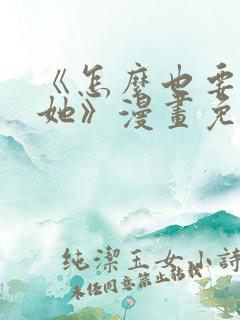 《怎麼也要
她》漫畫免
純潔玉女小詩
未经同意禁止转载